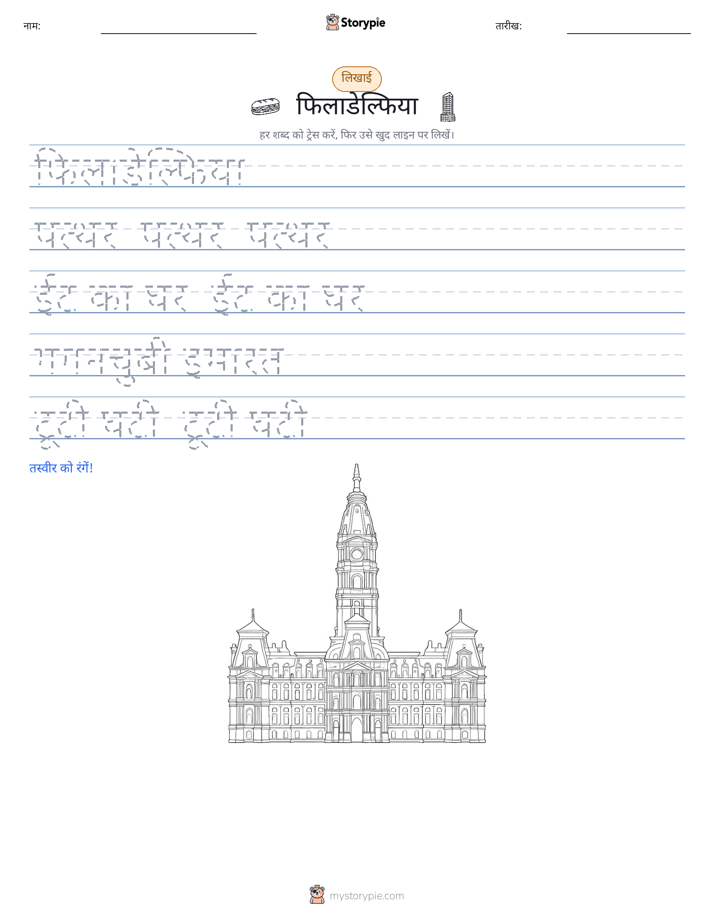 नाम:
Storypie
तारीख:
लिखाई
फिलाडेल्फिया
हर शब्द को ट्रेस करें, फिर उसे खुद लाइन पर लिखें।
फिलाडेल्फिया
पत्थर पत्थर पत्थर
ईंट का घर ईंट का घर
गगनचुंबी इमारत
टूटी घंटी टूटी घंटी
तस्वीर को रंगें!
mystorypie.com